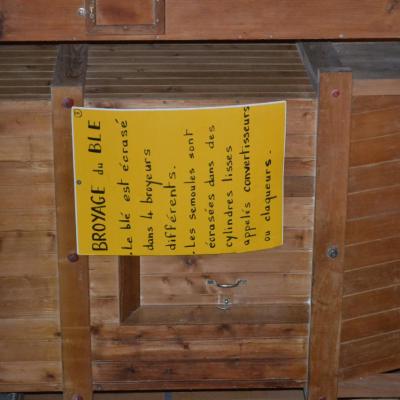 BROYAGE du BLE
. Le blé est écrasé
dans 4 broyeurs
différents.
. Les semoules sont
écrasées dans des
cylindres lisses
appelés convertisseurs
ou claqueurs.